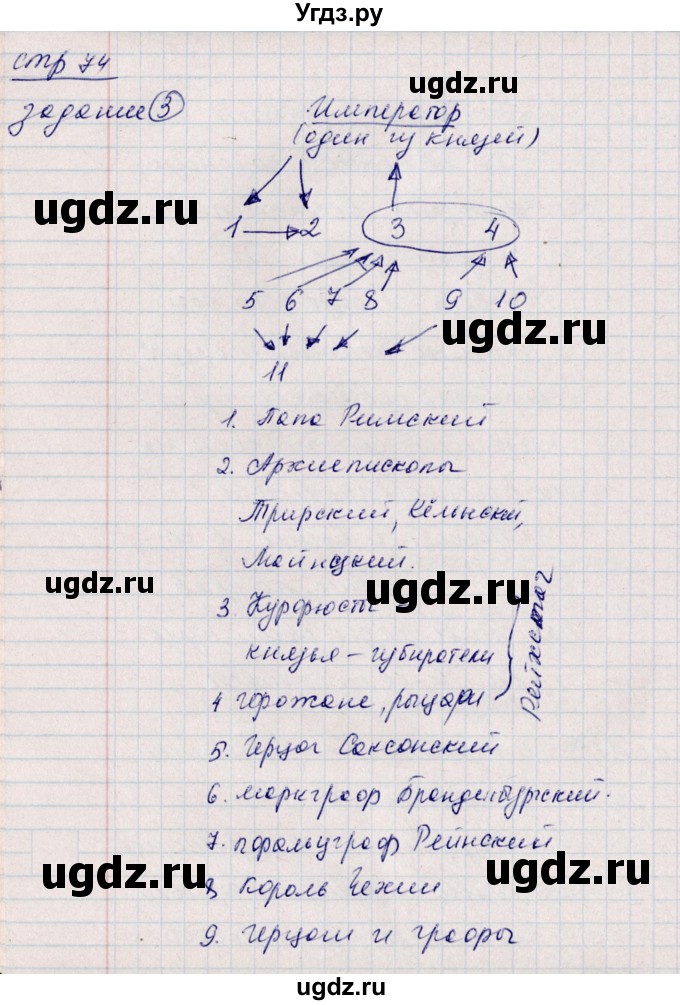 Угдз.ру
стр 74
задание 3
Император
(один из князей)
ugdz.ru
ugdz.ru
1 2 3 4
5 6 7 8 9 10
ugdz.ru
11
1. Папа Римский
2. Архиепископы
Трирский, Кёльнский,
Майнцкий.
ugdz.ru
ugdz.ru
3. Курфюсты
князья - избиратели
Рейхстаг
4 горожане, рыцари
5. Герцог Саксонский
6. маркграф Бранденбургский.
7. пфальцграф Рейнский
ugdz.ru
ugdz.ru
8 король Чехии
9. герцоги и графы
Угдз.ру